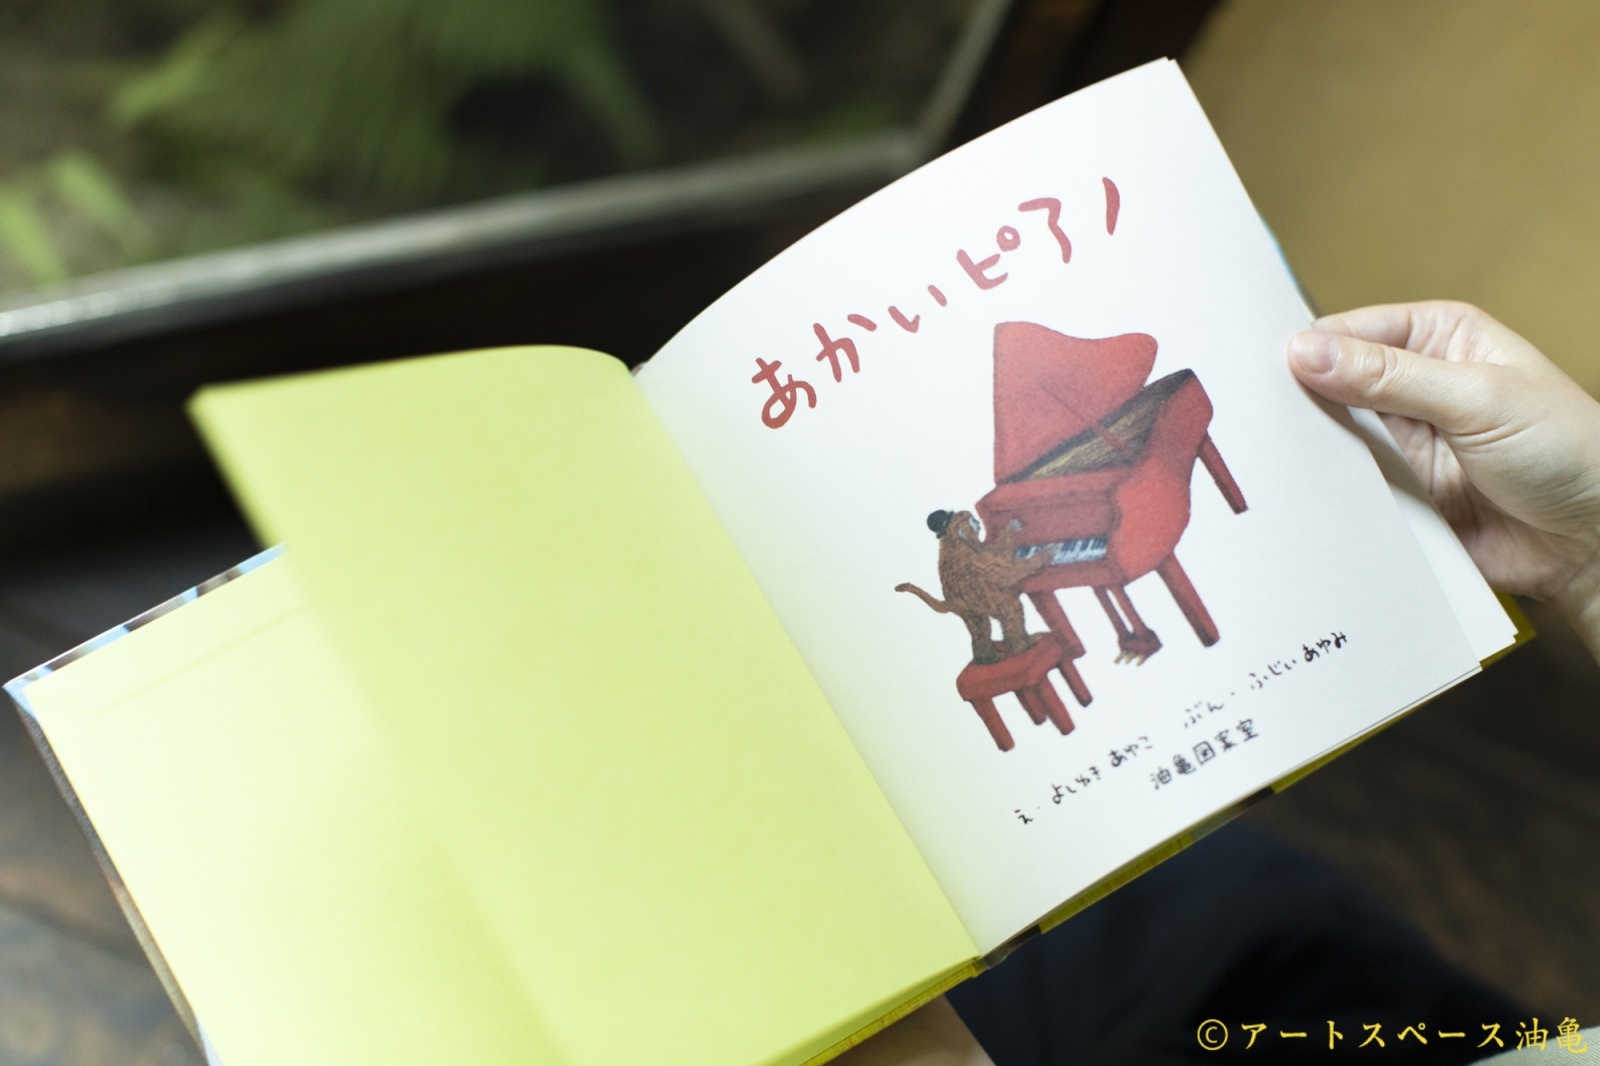 あかいピアノ
え・よしゆき あゆこ ぶん・ふじい あゆみ
油亀図案室
©アートスペース油亀